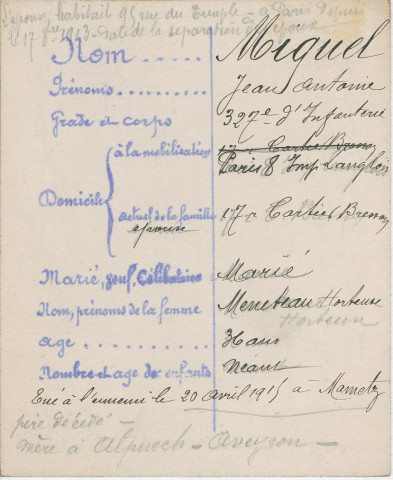 L'épouse habitait 95 rue du Temple - à Paris depuis
le 17 8bre 1913 - date de la séparation des époux
Nom ..... Miquel
Prénoms ........ Jean Antoine
Grade et corps 327e d'Infanterie
à la mobilisation 17 r Cartier Bresson
Paris 8 Imp Langlois
Domicile
actuel de la famille 17 r Cartier Bresson
épouse
Marié, veuf, Célibataire Marié
Nom, prénoms de la femme Meneteau Hortense
Hortense
age .......... 36 ans
Nombre et age des enfants Néant
Tué à l'ennemi le 20 avril 1915 à Mametz
père décédé -
mère à Alpuech - Aveyron -